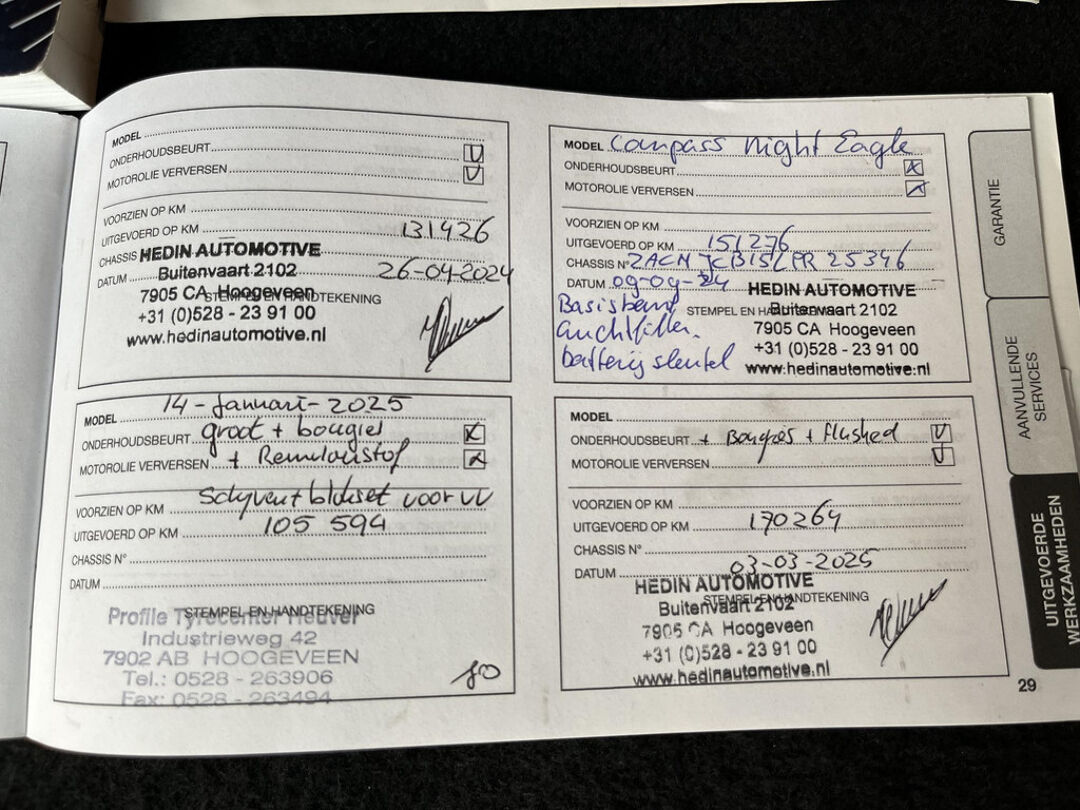 MODEL
ONDERHOUDSBEURT V
MOTOROLIE VERVERSEN V
VOORZIEN OP KM
UITGEVOERD OP KM 131426
CHASSIS
DATUM 26-04-2024
STEMPEL EN HANDTEKENING
HEDIN AUTOMOTIVE
Buitenvaart 2102
7905 CA Hoogeveen
+31 (0)528 - 23 91 00
www.hedinautomotive.nl
MODEL Compass Night Eagle
ONDERHOUDSBEURT X
MOTOROLIE VERVERSEN X
VOORZIEN OP KM
UITGEVOERD OP KM 151276
CHASSIS N°
DATUM 09-09-24
Basisbeurt
batterij sleutel
STEMPEL EN
HEDIN AUTOMOTIVE
Buitenvaart 2102
7905 CA Hoogeveen
+31 (0)528 - 23 91 00
www.hedinautomotive.nl
MODEL 14-Januari-2025
ONDERHOUDSBEURT groot + bougies X
MOTOROLIE VERVERSEN + Remvloeistof X
VOORZIEN OP KM voor
UITGEVOERD OP KM 105 594
CHASSIS N°
DATUM
STEMPEL EN HANDTEKENING
Profile Tyrecenter Heuver
Industrieweg 42
7902 AB HOOGEVEEN
Tel.: 0528 - 263906
Fax: 0528 - 263494
MODEL
ONDERHOUDSBEURT + Bougies + flushed V
MOTOROLIE VERVERSEN V
VOORZIEN OP KM
UITGEVOERD OP KM 170264
CHASSIS N°
DATUM 03-03-2025
STEMPEL EN HANDTEKENING
HEDIN AUTOMOTIVE
Buitenvaart 2102
7905 CA Hoogeveen
+31 (0)528 - 23 91 00
www.hedinautomotive.nl
GARANTIE
AANVULLENDE
SERVICES
UITGEVOERDE
WERKZAAMHEDEN
29